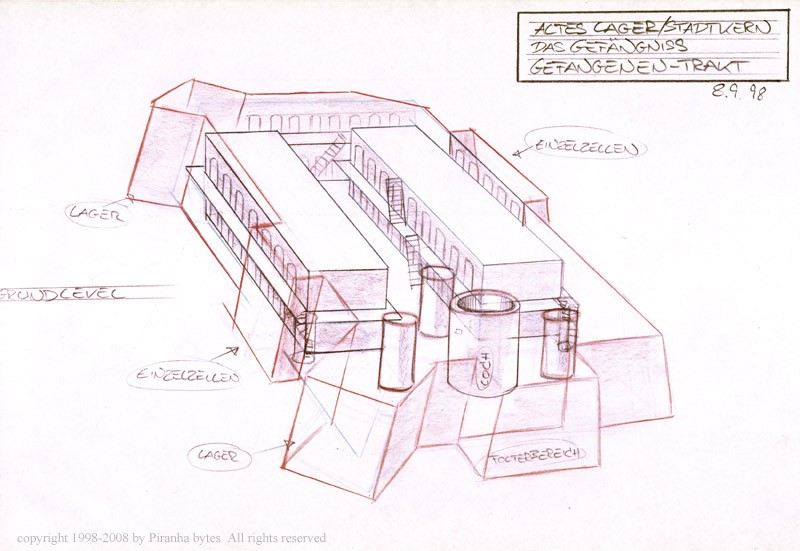 ALTES LAGER/STADTKERN
DAS GEFÄNGNISS
GEFANGENEN-TRAKT
8.9.98
EINZELZELLEN
LAGER
GRUNDLEVEL
EINZELZELLEN
LOCH
LAGER
FOLTERBEREICH
copyright 1998-2008 by Piranha bytes All rights reserved